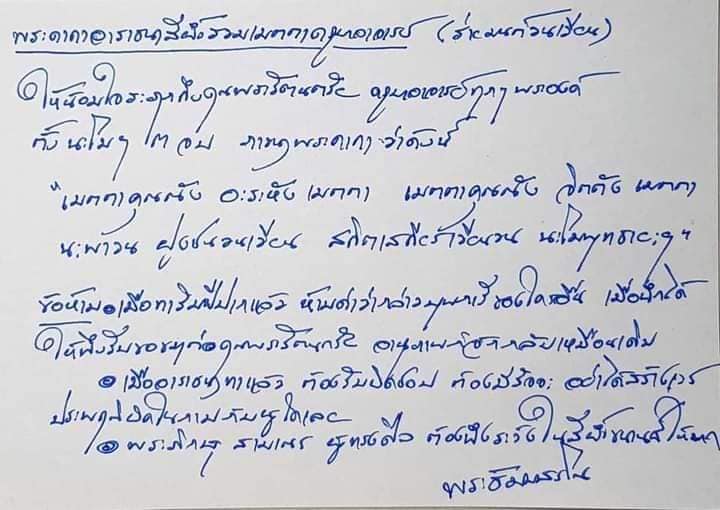 พระคาถาอาราธนาสีผึ้งรวมเมตตาครูบาอาจารย์ (ร่ายมนต์วนเวียน)
ให้น้อมใจระลึกถึงคุณพระรัตนตรัย ครูบาอาจารย์ทุกๆ พระองค์
ตั้งนะโมฯ ๓ จบ ภาวนาพระคาถาว่าดังนี้
"เมตตาคุณณัง อะระหัง เมตตา เมตตาคุณณัง จิตตัง เมตตา
นะพาวน ฝูงชนวนเวียน นะโมพุทธายะฯ"
ข้อห้าม ๑ เมื่อทาริมฝีปากแล้ว ห้ามด่าว่ากล่าวบุพการีของใครอื่น เมื่อนึกได้
ให้พึงรีบขอขมาต่อคุณพระรัตนตรัย อานุภาพก็จะกลับเหมือนเดิม
๑ เมื่ออาราธนาทาแล้ว ต้องรับผิดชอบ ต้องมีสัจจะ อย่าได้สร้างเวร
ประพฤติผิดในกามกับผู้ใดเลย
๑ พระภิกษุ สามเณร ผู้ทรงศีล ต้องพึงระวัง ให้มาก